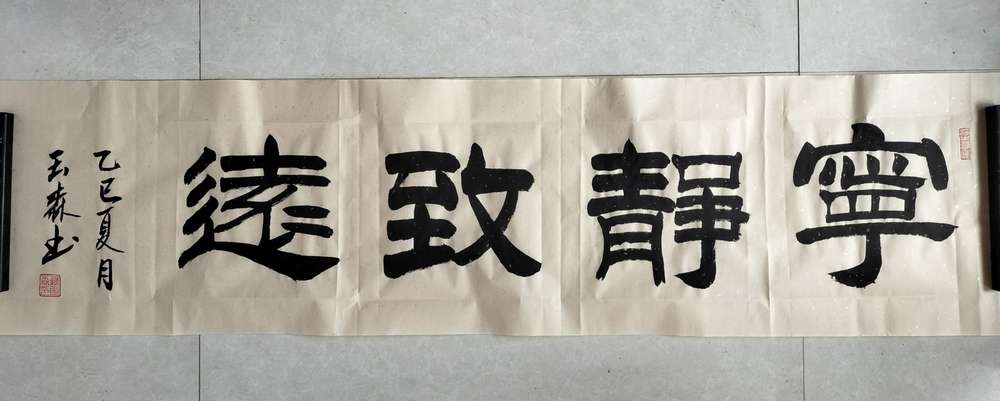 寧靜致遠
乙巳夏月
玉森书